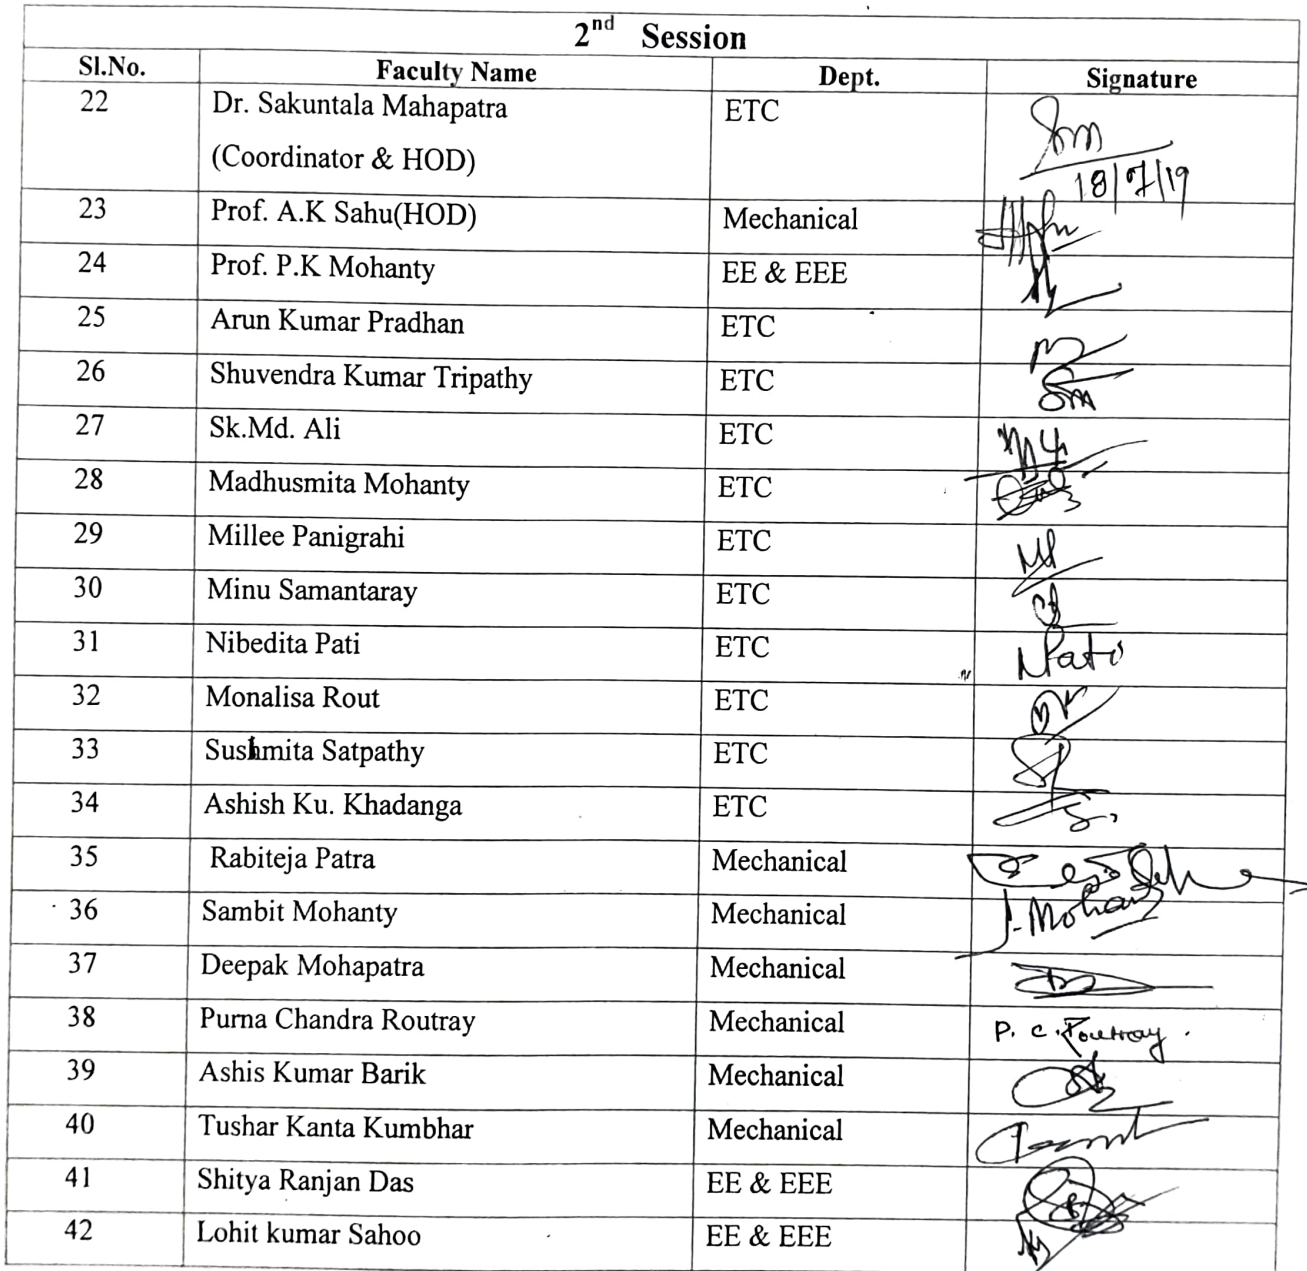 2nd Session
Sl.No. Faculty Name Dept. Signature
22 Dr. Sakuntala Mahapatra ETC
(Coordinator & HOD)
18/7/19
23 Prof. A.K Sahu(HOD) Mechanical
24 Prof. P.K Mohanty EE & EEE
25 Arun Kumar Pradhan ETC
26 Shuvendra Kumar Tripathy ETC
27 Sk.Md. Ali ETC
28 Madhusmita Mohanty ETC
29 Millee Panigrahi ETC
30 Minu Samantaray ETC
31 Nibedita Pati ETC NPati
32 Monalisa Rout ETC
33 Sushmita Satpathy ETC
34 Ashish Ku. Khadanga ETC
35 Rabiteja Patra Mechanical
36 Sambit Mohanty Mechanical S. Mohanty
37 Deepak Mohapatra Mechanical
38 Purna Chandra Routray Mechanical P. C. Routray.
39 Ashis Kumar Barik Mechanical
40 Tushar Kanta Kumbhar Mechanical
41 Shitya Ranjan Das EE & EEE
42 Lohit kumar Sahoo EE & EEE